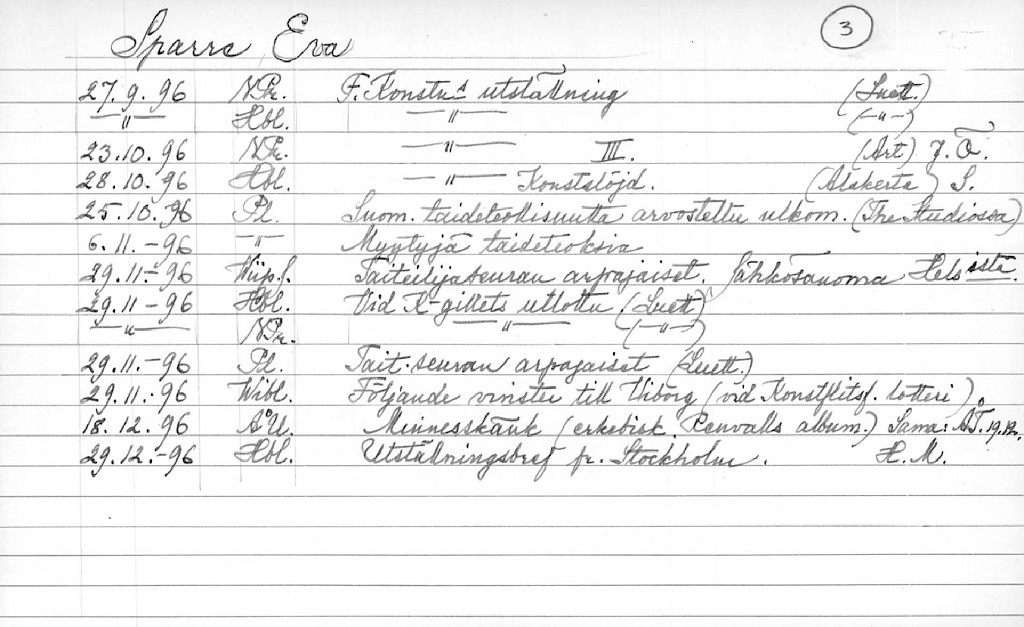 Sparre, Eva 3
27.9.96 N.Pr. F. Konstn:s utställning (Luett.)
—"— Hbl. —"— (—"—)
23.10.96 N.Pr. —"— III. (Art) J. Ö.
28.10.96 Hbl. —"— Konstslöjd. (Alakerta) S.
25.10.96 Pl. Suom. taideteollisuutta arvosteltu ulkom. (The Studiossa)
6.11.-96 —"— Myytyjä taideteoksia
29.11.-96 Wiip.S. Taiteilijaseuran arpajaiset. Sähkösanoma Helsistä.
29.11-96 Hbl. Vid K-gillets utlottn. (Luett)
—"— N.Pr. —"— (—"—)
29.11.-96 Pl. Tait. seuran arpajaiset (Luett.)
29.11.-96 Wibl. Följande vinster till Viborg (vid lotteri).
18.12.96 ÅU. Minnesskänk (erkebisk. Renvalls album.) Sama: ÅT. 19.12.
29.12.-96 Hbl. Utställningsbref fr. Stockholm. H.M.